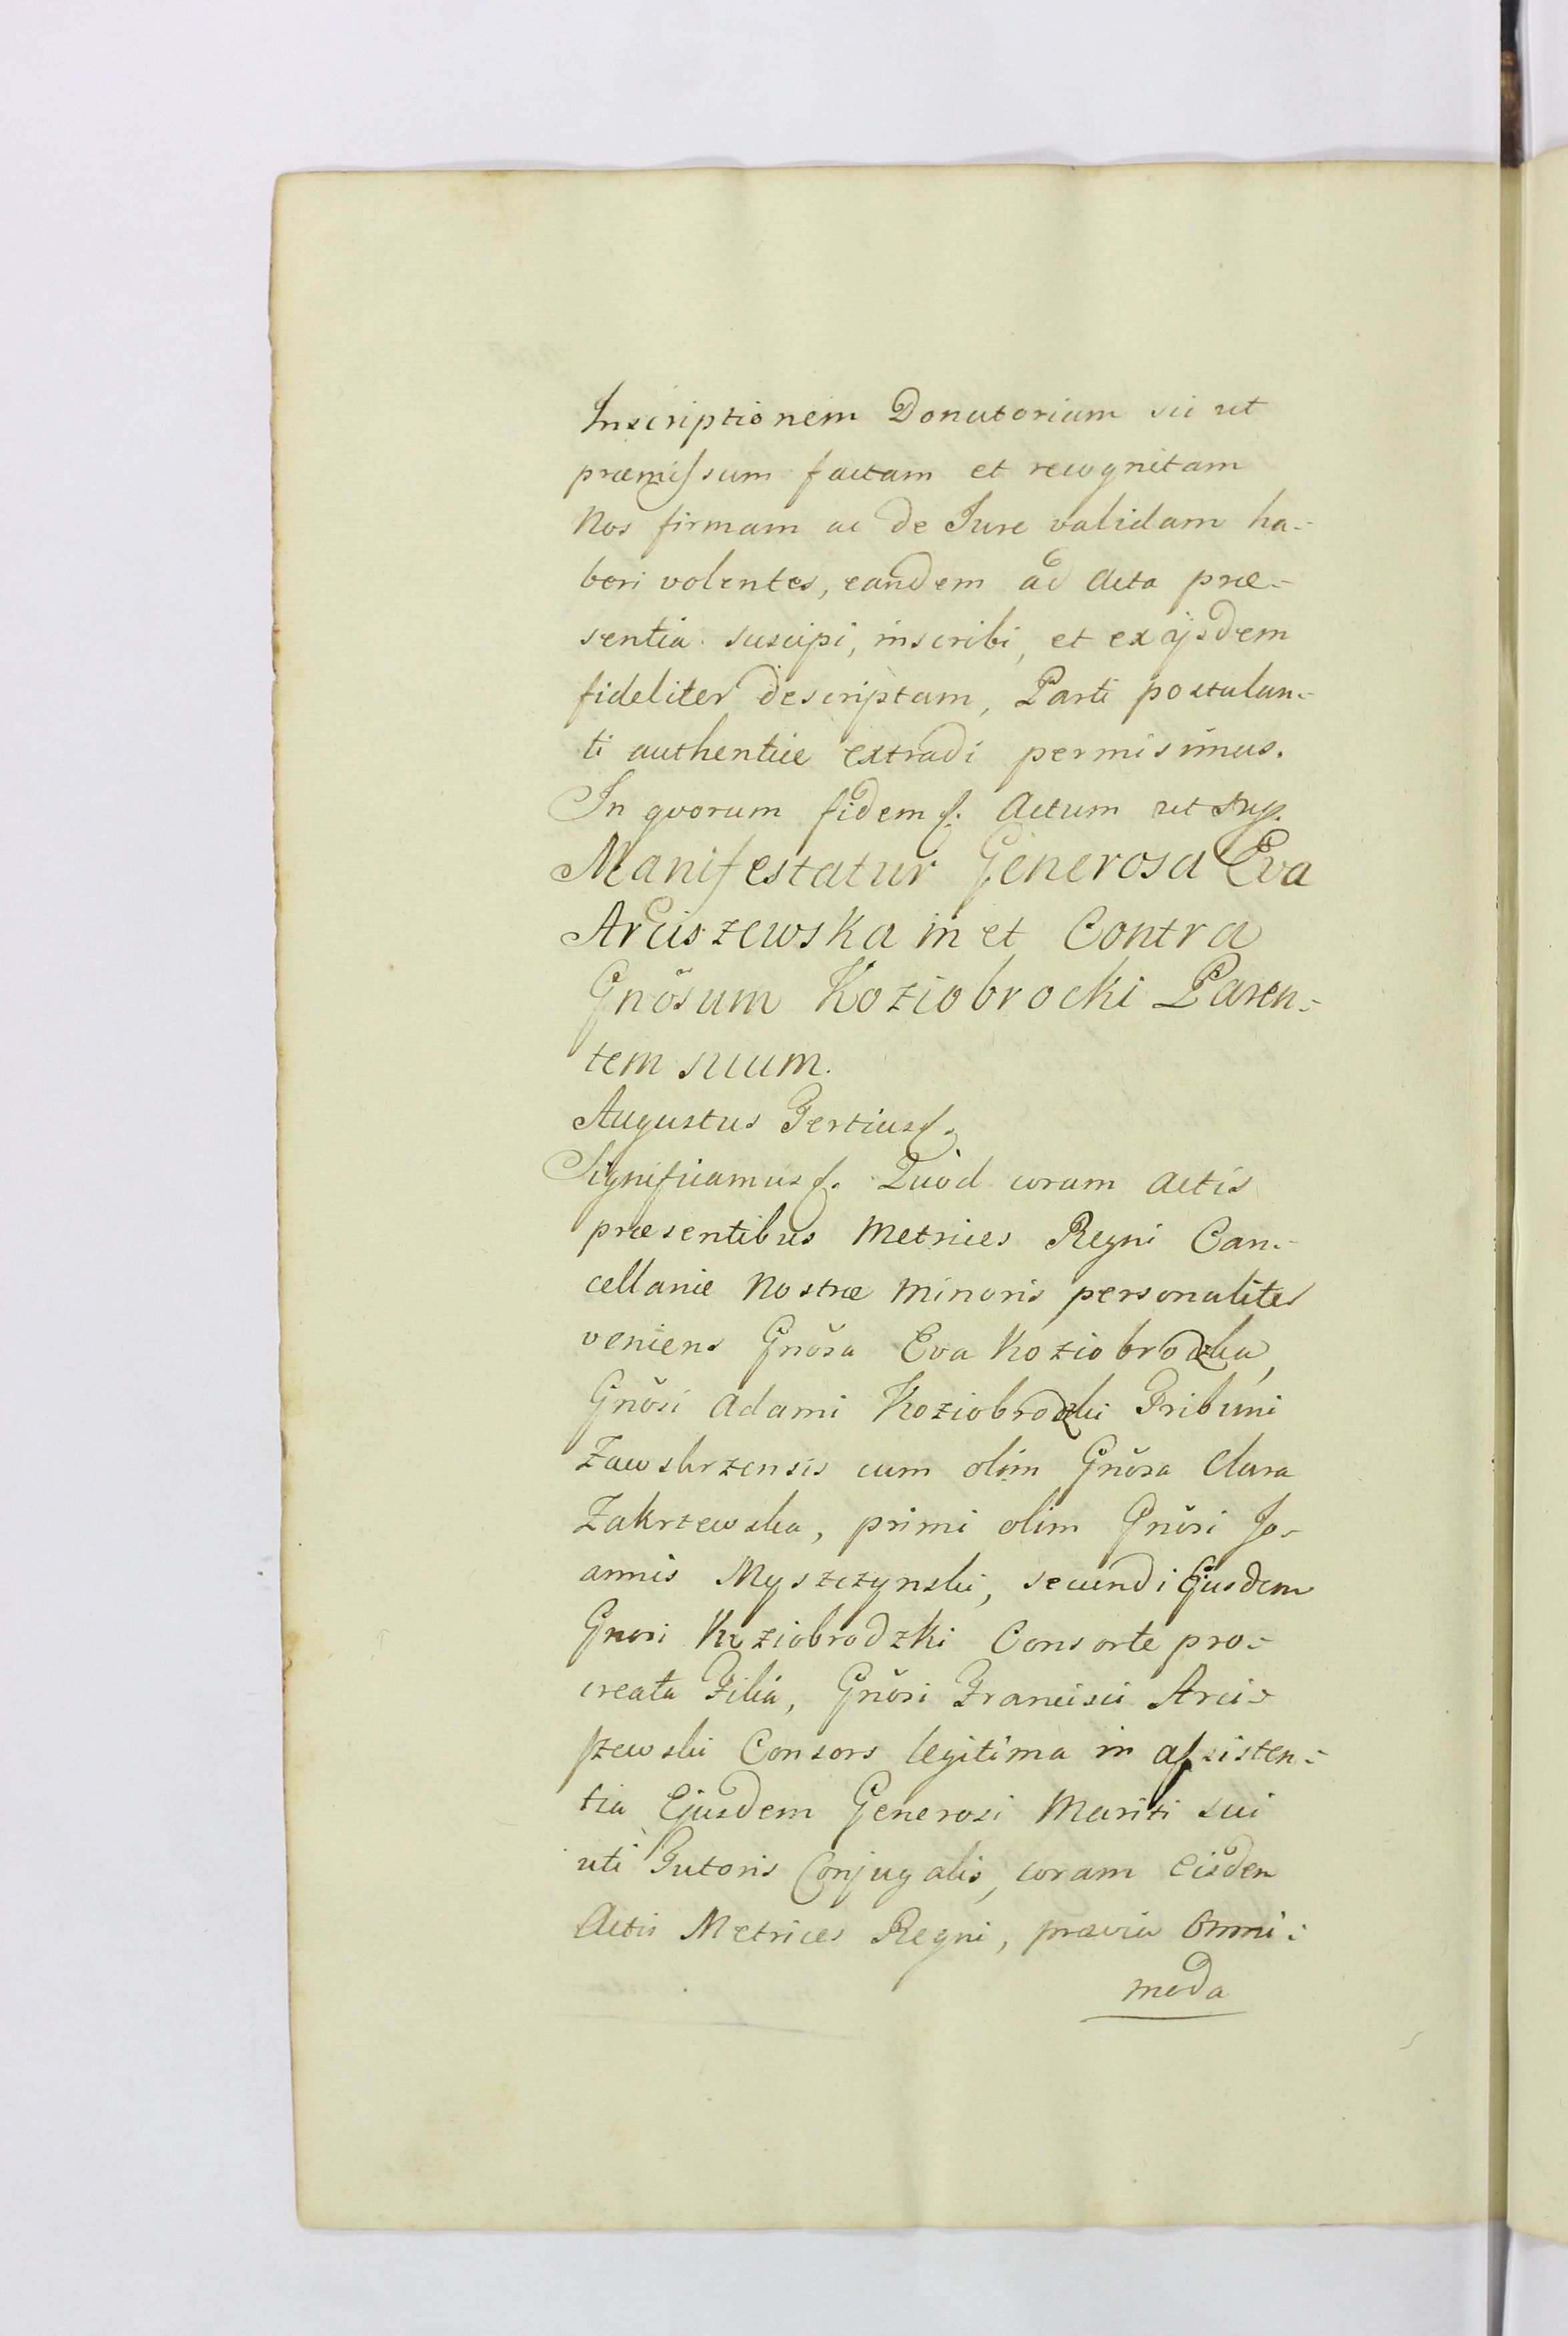 Inscriptionem Donatoriam sic ut
præmissum factam et recognitam
Nos firmam ac de Iure validam ha-
beri volentes, eandem ad Acta præ-
sentia suscipi, inscribi, et ex ijsdem
fideliter descriptam, Parti postulan-
ti authentice extradi permisimus.
In quorum fidem &. Actum ut sup.
Manifestatur Generosa Eva
Arciszewska in et Contra
Gnõsum Koziobrocki Paren-
tem suum.
Augustus Tertius &.
Significamus &. Quòd coram Actis
præsentibus Metrices Regni Can-
cellariæ Nostræ Minoris personaliter
veniens Gnõsa Eva Koziobrodzka,
Gnõsi Adami Koziobrodzki Tribuni
Zawskrzensis cum olim Gnõsa Clara
Zakrzewska, primi olim Gnõsi Jo-
annis Myszczynski, secundi Ejusdem
Gnosi Koziobrodzki Consorte pro-
creata Filia, Gnõsi Francisci Arci-
szewski Consors legitima in assisten-
tia Ejusdem Generosi Mariti sui
uti Tutoris Conjugalis, coram Eisdem
Actis Metrices Regni, prævia Omni-
moda